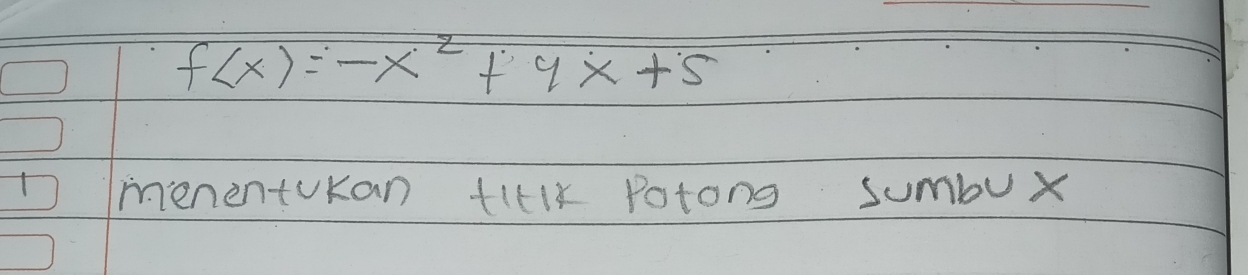 f(x) = -x² + 4x + 5
1 menentukan titik Potong sumbu X